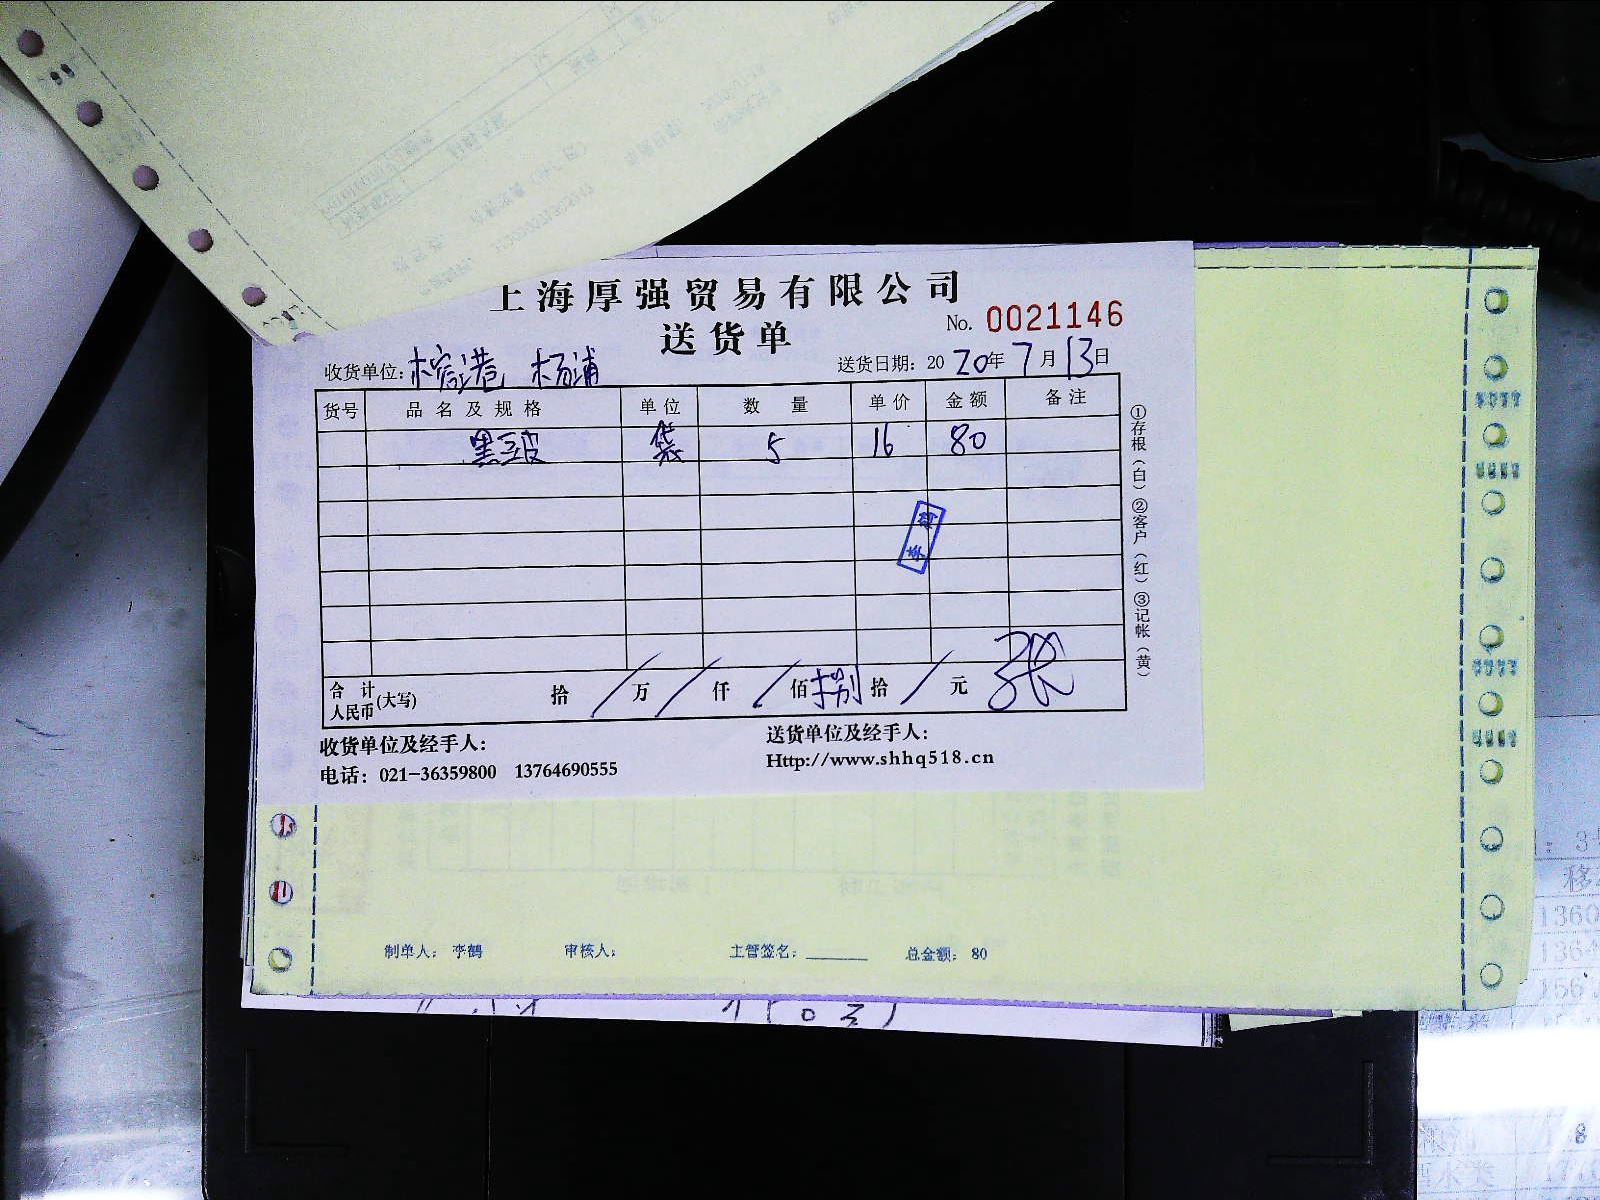 上海厚强贸易有限公司
送货单
No. 0021146
收货单位: 杨浦
送货日期: 2020年7月13日
货号 品名及规格 单位 数量 单价 金额 备注
黑豆皮 袋 5 16 80
合计人民币(大写) 拾 / 万 / 仟 / 佰 捌 拾 / 元 张
①存根(白)②客户(红)③记帐(黄)
收货单位及经手人:
送货单位及经手人:
电话: 021-36359800 13764690555
Http://www.shhq518.cn
制单人: 李鹤 审核人: 主管签名: ______ 总金额: 80